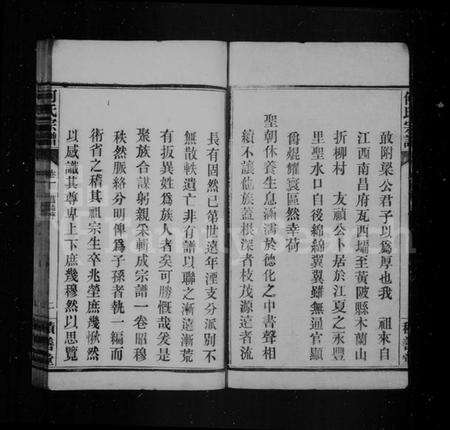 敢附梁公君子以爲厚也我 祖來自
江西南昌府瓦西壩至黃陂縣木蘭山
折柳村 友禎公卜居於江夏之永豐
里聖水口自後綿綿翼翼雖無通官顯
爵焜耀寰區然幸荷
聖朝休養生息涵濡於德化之中書聲相
續不讓他族蓋根深者枝茂源遠者流
長有固然已第世遠年湮支分派別不
無散軼遺亡非有譜以聯之漸遠漸荒
有扳異姓爲族人者矣可勝慨哉爰是
聚族合謀躬親采輯成宗譜一卷昭穆
秩然脈絡分明俾爲子孫者執一編而
術省之稽其祖宗生卒兆塋庶幾愀然
以感識其尊卑上下庶幾穆然以思覽
何氏宗譜
積善堂